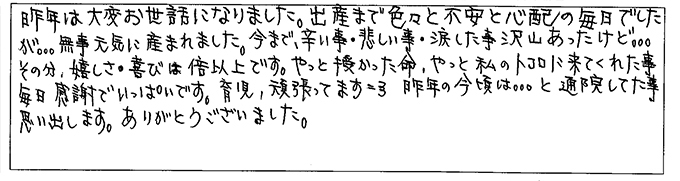 昨年は大変お世話になりました。出産まで色々と不安と心配の毎日でした
が…無事元気に産まれました。今まで、辛い事・悲しい事・涙した事沢山あったけど…
その分、嬉しさ・喜びは倍以上です。やっと授かった命、やっと私のトコロに来てくれた事
毎日感謝でいっぱいです。育児、頑張ってます=3 昨年の今頃は…と通院してた事
思い出します。ありがとうございました。